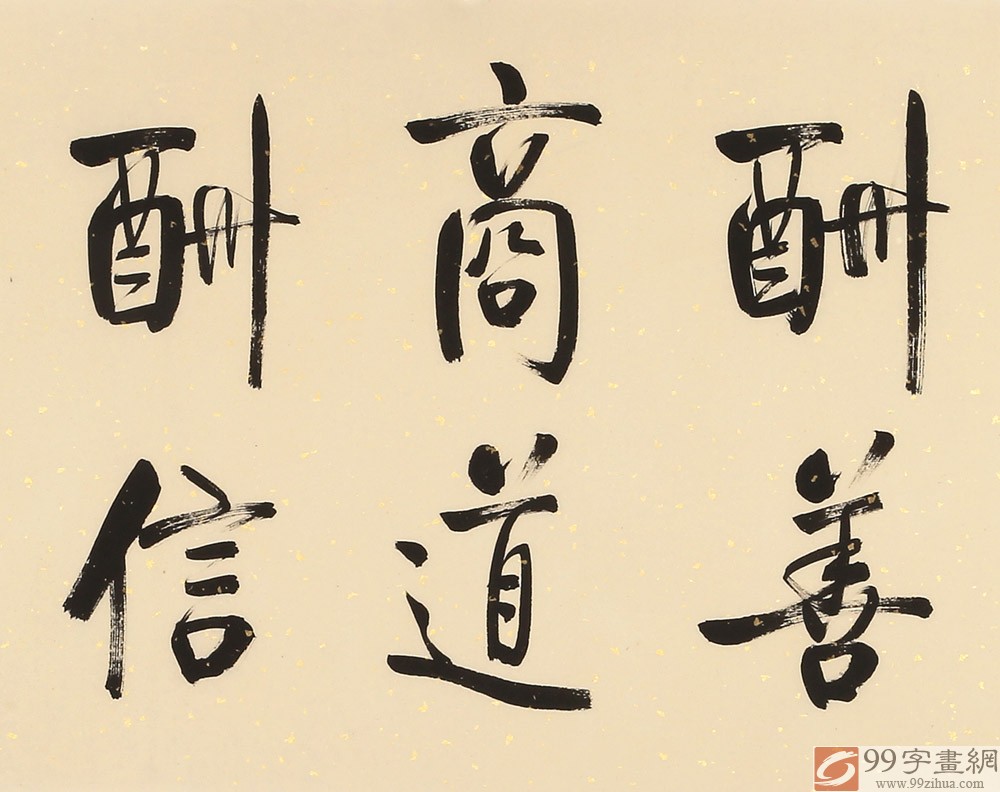 酬善
商道
酬信
99字畫網
www.99zihua.com